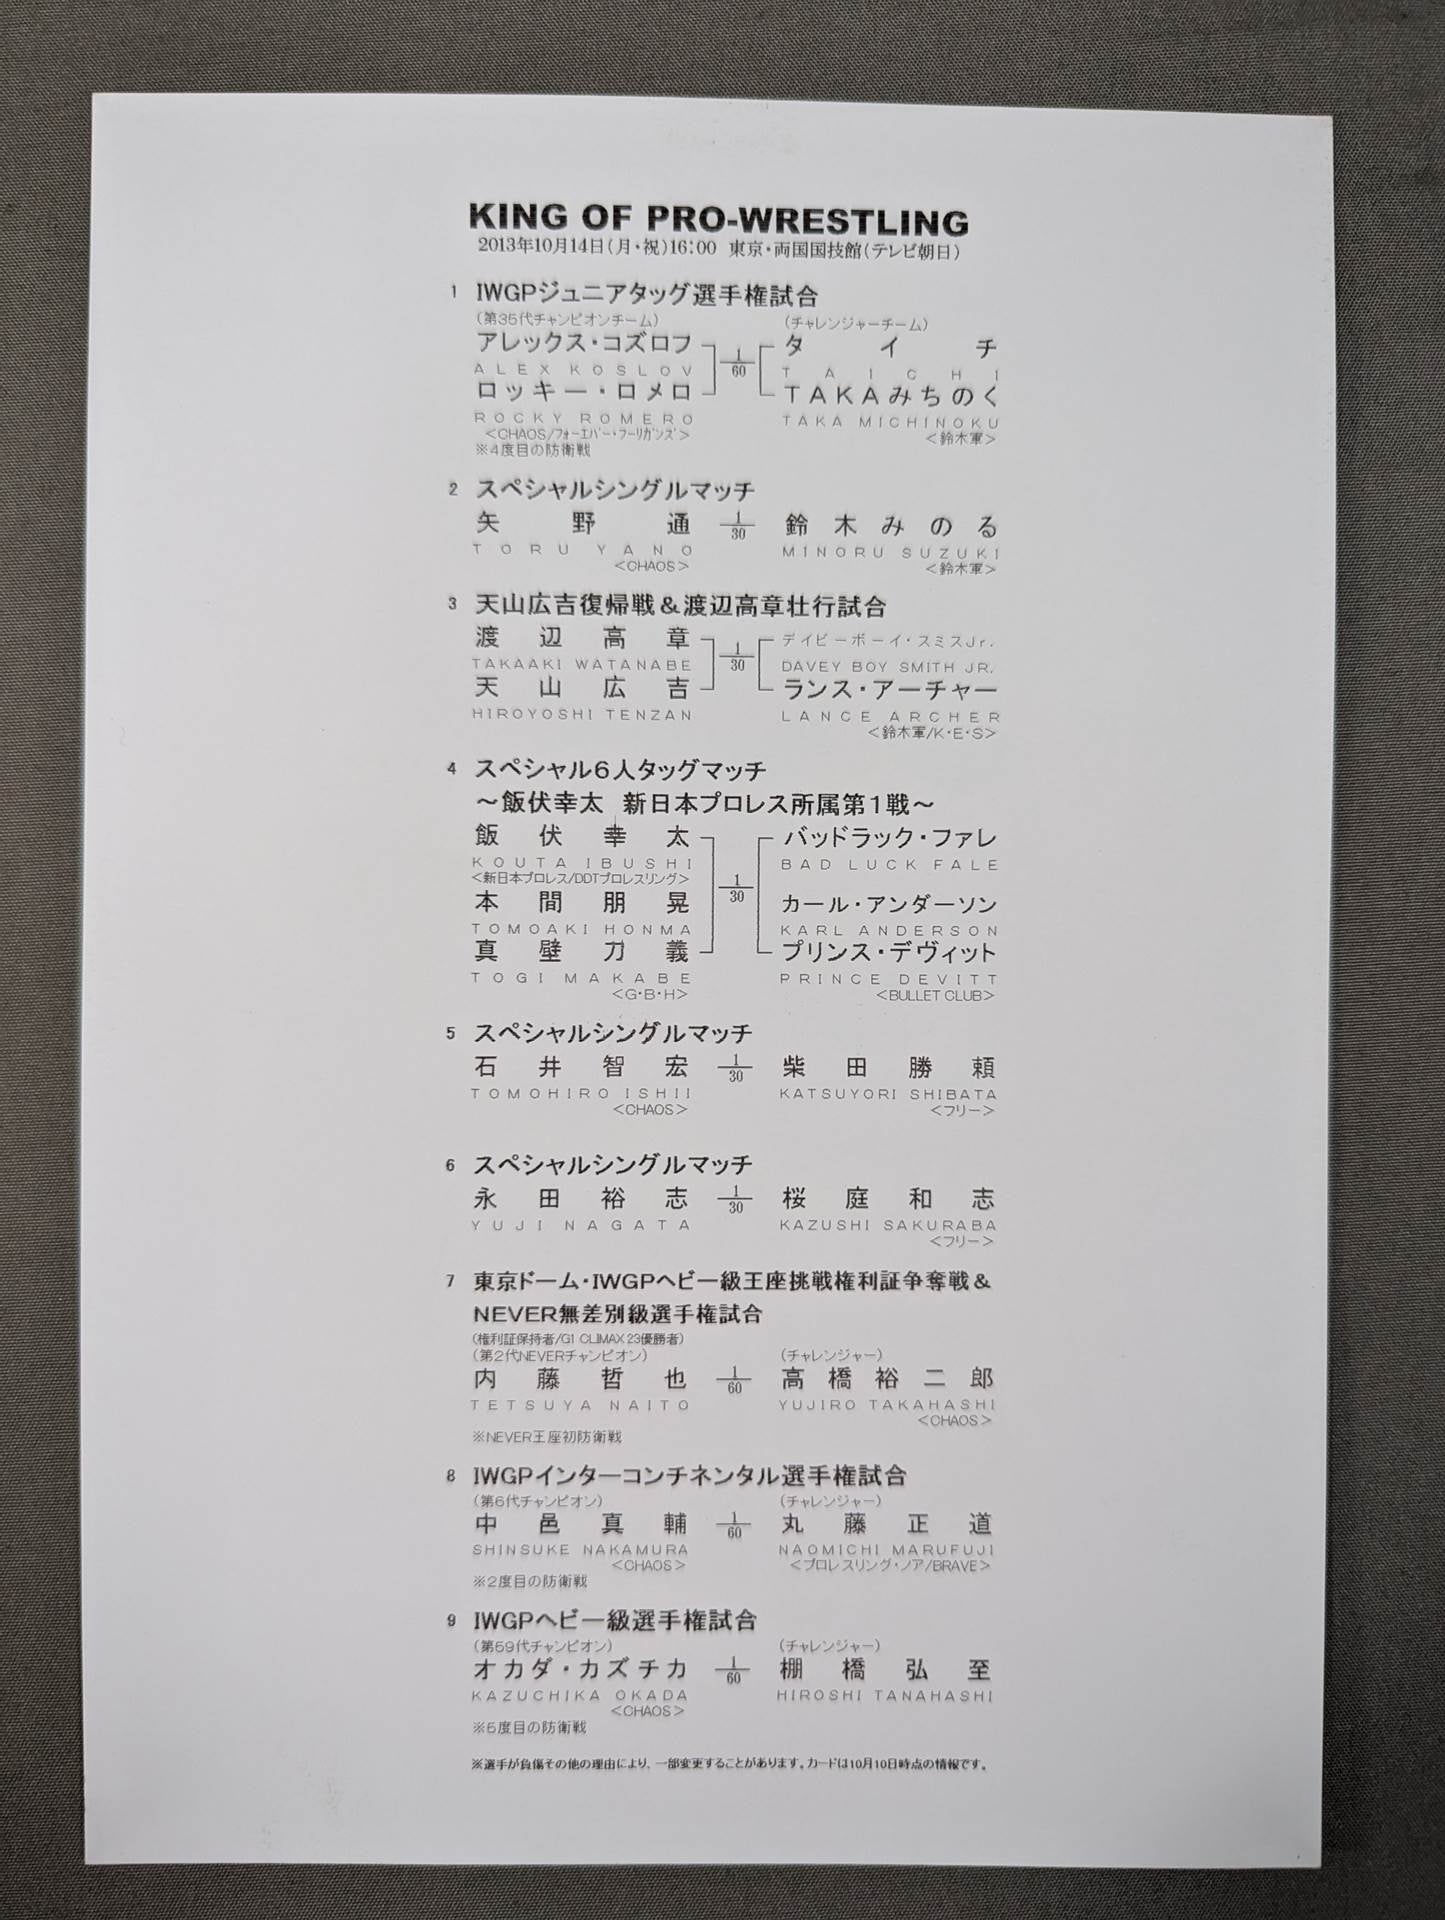 KING OF PRO-WRESTLING
2013年10月14日(月・祝)16:00 東京・両国国技館(テレビ朝日)
1 IWGPジュニアタッグ選手権試合
(第35代チャンピオンチーム) (チャレンジャーチーム)
アレックス・コズロフ 1/60 タイチ
ALEX KOSLOV TAICHI
ロッキー・ロメロ TAKAみちのく
ROCKY ROMERO TAKA MICHINOKU
<CHAOS/フォーエバー・フーリガンズ> <鈴木軍>
※4度目の防衛戦
2 スペシャルシングルマッチ
矢野通 1/30 鈴木みのる
TORU YANO MINORU SUZUKI
<CHAOS> <鈴木軍>
3 天山広吉復帰戦&渡辺高章壮行試合
渡辺高章 1/30 デイビーボーイ・スミスJr.
TAKAAKI WATANABE DAVEY BOY SMITH JR.
天山広吉 ランス・アーチャー
HIROYOSHI TENZAN LANCE ARCHER
<鈴木軍/K・E・S>
4 スペシャル6人タッグマッチ
～飯伏幸太 新日本プロレス所属第1戦～
飯伏幸太 1/30 バッドラック・ファレ
KOUTA IBUSHI BAD LUCK FALE
<新日本プロレス/DDTプロレスリング>
本間朋晃 カール・アンダーソン
TOMOAKI HONMA KARL ANDERSON
真壁刀義 プリンス・デヴィット
TOGI MAKABE PRINCE DEVITT
<G・B・H> <BULLET CLUB>
5 スペシャルシングルマッチ
石井智宏 1/30 柴田勝頼
TOMOHIRO ISHII KATSUYORI SHIBATA
<CHAOS> <フリー>
6 スペシャルシングルマッチ
永田裕志 1/30 桜庭和志
YUJI NAGATA KAZUSHI SAKURABA
<フリー>
7 東京ドーム・IWGPヘビー級王座挑戦権利証争奪戦&
NEVER無差別級選手権試合
(権利証保持者/G1 CLIMAX 23優勝者)
(第2代NEVERチャンピオン) (チャレンジャー)
内藤哲也 1/60 高橋裕二郎
TETSUYA NAITO YUJIRO TAKAHASHI
<CHAOS>
※NEVER王座初防衛戦
8 IWGPインターコンチネンタル選手権試合
(第6代チャンピオン) (チャレンジャー)
中邑真輔 1/60 丸藤正道
SHINSUKE NAKAMURA NAOMICHI MARUFUJI
<CHAOS> <プロレスリング・ノア/BRAVE>
※2度目の防衛戦
9 IWGPヘビー級選手権試合
(第59代チャンピオン) (チャレンジャー)
オカダ・カズチカ 1/60 棚橋弘至
KAZUCHIKA OKADA HIROSHI TANAHASHI
<CHAOS>
※5度目の防衛戦
※選手が負傷その他の理由により、一部変更することがあります。カードは10月10日時点の情報です。